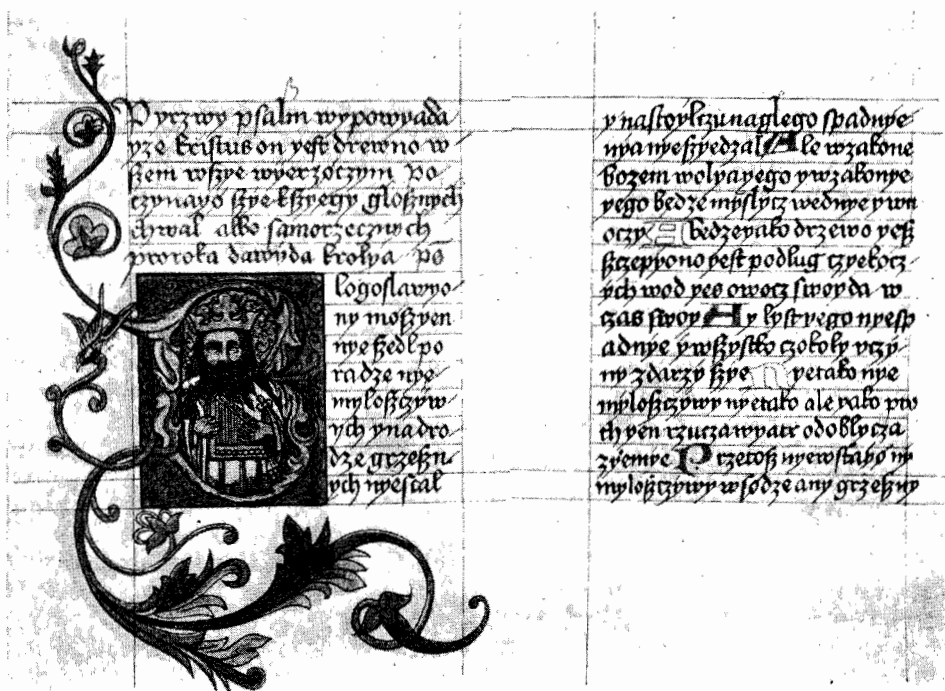 Pyrzwy psalm wypowyada
yze kristus on yest drewno w
szem wszye wyerzoczym Po
czynayo szye kszyegy glosznych
chwal albo samorzecznych
proroka dawyda krolya ps
logoslawyo
ny moszyen
nye szedl po
radze nye
mylosczyw
ych y na dro
dze grzeszn
ych nyestal
y na stoylczu naglego spadnye
nya nyeszyedzal Ale w zakone
bozem wolya yego y w zakonye
yego bedze myslycz wednye y w n
oczy A bedze yako drzewo yesz
szczepyono yest podlug czyekocz
ych wod yes owocz swoy da w
czas swoy A y lyst yego nyesp
adnye y wszystko czokoly vczy
ny zdarzy szye Nyetako nye
mylosczywy nyetako ale yako pro
ch yen rzucza wyatr od oblycza
zyemye Przetosz nyewstayo ny
mylosczywy w sodze any grzeszny